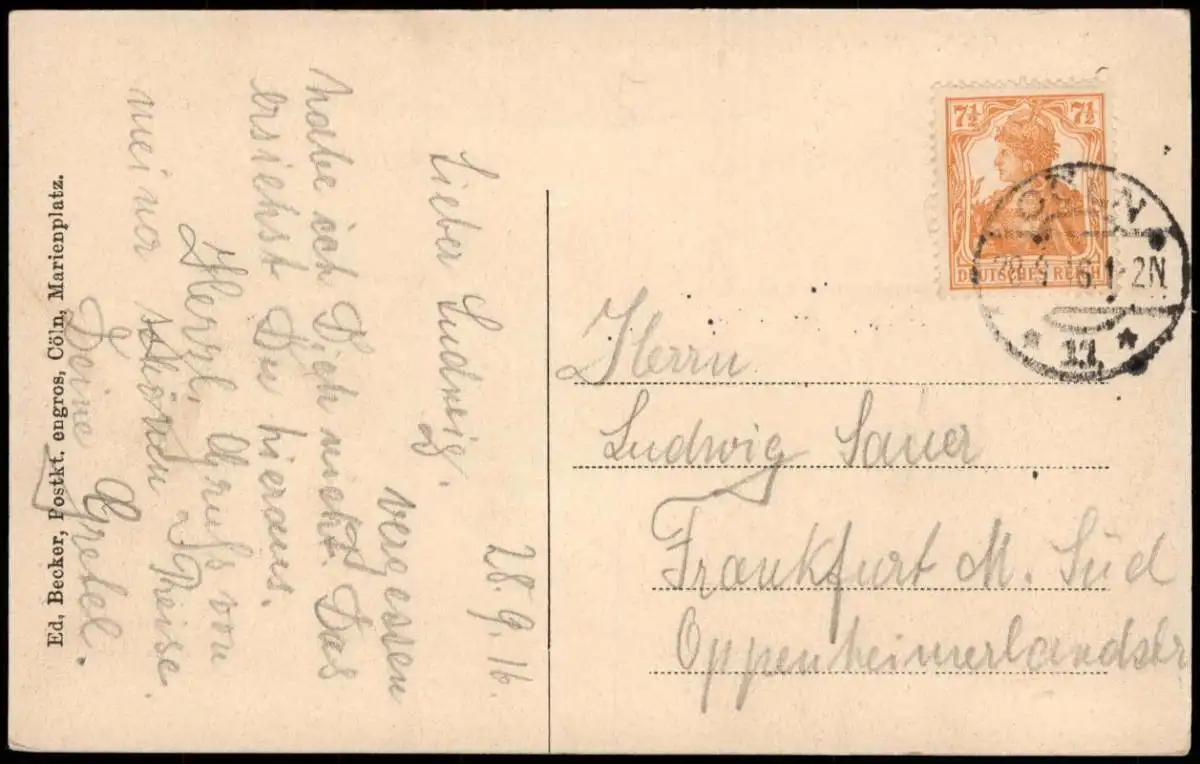 28.9.16.
Lieber Ludwig.
vergessen
habe ich Dich nicht. Das
ersiehst Du hieraus.
Herzl. Gruß von
meiner schönen Reise.
Deine Gretel.
Ed. Becker, Postkt. engros, Cöln, Marienplatz.
7½ 7½
DEUTSCHES REICH
CÖLN
28.9.16.1-2N
* 11 *
Herrn
Ludwig Sauer
Frankfurt M. Süd
Oppenheimerlandstr